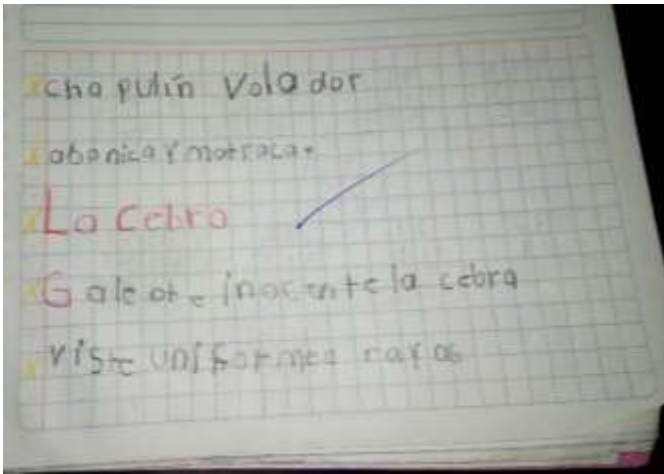 chapulín Volador
abanica y matraca.
La Cebra
Galeote inocente la cebra
viste uniformea rayas